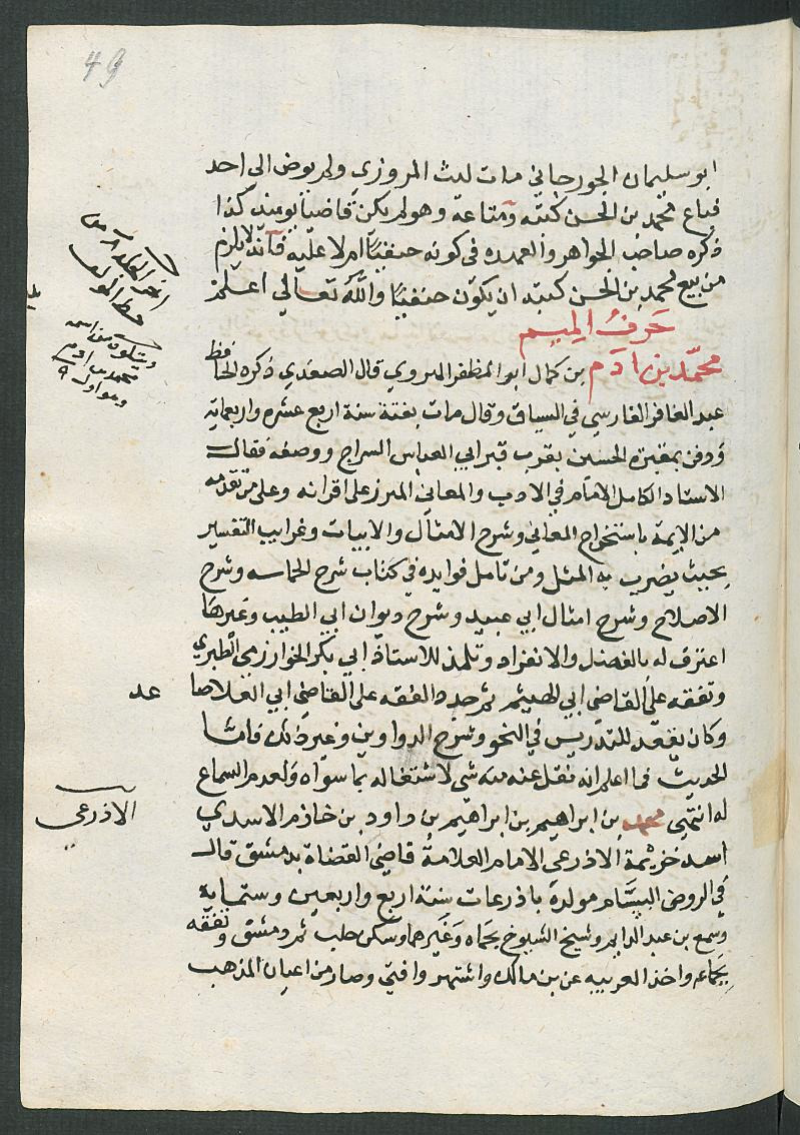 49
ابو سليمان الجورجاني مات ليث المروزي ولم يوص الى احد
فباع محمد بن الحسن كتبه ومتاعه وهو لم يكن قاضيا يومئذ كذا
ذكره صاحب الجواهر والعمده في كونه حنفيًا ام لا عليه فانه لا يلزم
من بيع محمد بن الحسن كتبه ان يكون حنفيًا والله تعالى اعلم
حرف الميم
محمد بن ادم بن كمال ابو المظفر الهروي قال الصفدي ذكره الحافظ
عبد الغافر الفارسي في السياق وقال مات بغتة سنة اربع عشره واربعمائة
ودفن بمقبرة الحسين بقرب قبر ابي العباس السراج ووصفه فقال
الاستاد الكامل الامام في الادب والمعاني المبرز على اقرانه وعلى من تقدمه
من الايمة باستخراج المعاني وشرح الامثال والابيات وغرايب التفسير
بحيث يضرب به المثل ومن تامل فوايده في كتاب شرح الحماسه وشرح
الاصلاح وشرح امثال ابي عبيد وشرح ديوان ابي الطيب وغيرها
اعترف له بالفضل والانفراد وتلمذ للاستاذ ابي بكر الخوارزمي الطبري
وتفقه على القاضي ابي الهيثم ثم جدد الفقه على القاضي ابي العلا صا
عد
وكان يقعد للتدريس في النحو وشرح الدواوين وغير ذلك فاما
الحديث فما اعلم انه نقل عنه منه شي لاشتغاله بما سواه ولعدم السماع
له انتهى محمد بن ابراهيم بن ابراهيم بن داود بن خازم الاسدي
الاذرعي
اسد خزيمة الاذرعي الامام العلامة قاضي القضاة بدمشق قال
في الروض البسام مولده باذرعات سنة اربع واربعين وستماية
وسمع بن عبد الدايم وشيخ الشيوخ بحماه وغيرهما وسكن حلب ثم دمشق وتفقه
بجماعه واخذ العربيه عن بن مالك واشتهر وافتى وصار من اعيان المذهب
اخر الجلد ٨ من
خط المولف
ويتلوه من اسمه
محمد بن ادم
وهو اول ٩